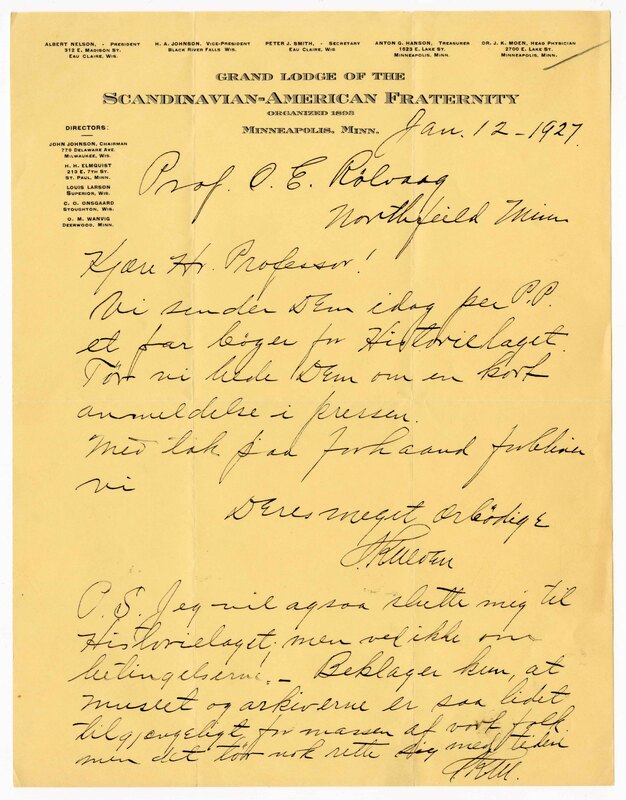 ALBERT NELSON, - PRESIDENT
312 E. MADISON ST.
EAU CLAIRE, WIS.
H. A. JOHNSON, VICE-PRESIDENT
BLACK RIVER FALLS WIS.
PETER J. SMITH, - SECRETARY
EAU CLAIRE, WIS.
ANTON G. HANSON, TREASURER
1623 E. LAKE ST.
MINNEAPOLIS, MINN.
DR. J. K. MOEN, HEAD PHYSICIAN
2700 E. LAKE ST.
MINNEAPOLIS, MINN.
GRAND LODGE OF THE
SCANDINAVIAN-AMERICAN FRATERNITY
ORGANIZED 1893
MINNEAPOLIS, MINN.
DIRECTORS:
JOHN JOHNSON, CHAIRMAN
776 DELAWARE AVE.
MILWAUKEE, WIS.
H. H. ELMQUIST
213 E. 7TH ST.
ST. PAUL, MINN.
LOUIS LARSON
SUPERIOR, WIS.
C. O. ONSGAARD
STOUGHTON, WIS.
O. M. WANVIG
DEERWOOD, MINN.
Jan. 12 - 1927.
Prof. O. E. Rölvaag
Northfeild Minn
Kjære Hr. Professor!
Vi sender Dem idag per P.P.
et par bøger for Historielaget.
Tør vi bede Dem om en kort
anmeldelse i pressen.
Med tak paa forhaand forbliver
vi
Deres meget ærbödige
P.S. Jeg vil ogsaa slutte mig til
Historielaget; men ved ikke om
betingelserne! - Beklager kun, at
museet og arkiverne er saa lidet
tilgjengeligt for massen af vort folk
men det tör nok rette sig med tiden